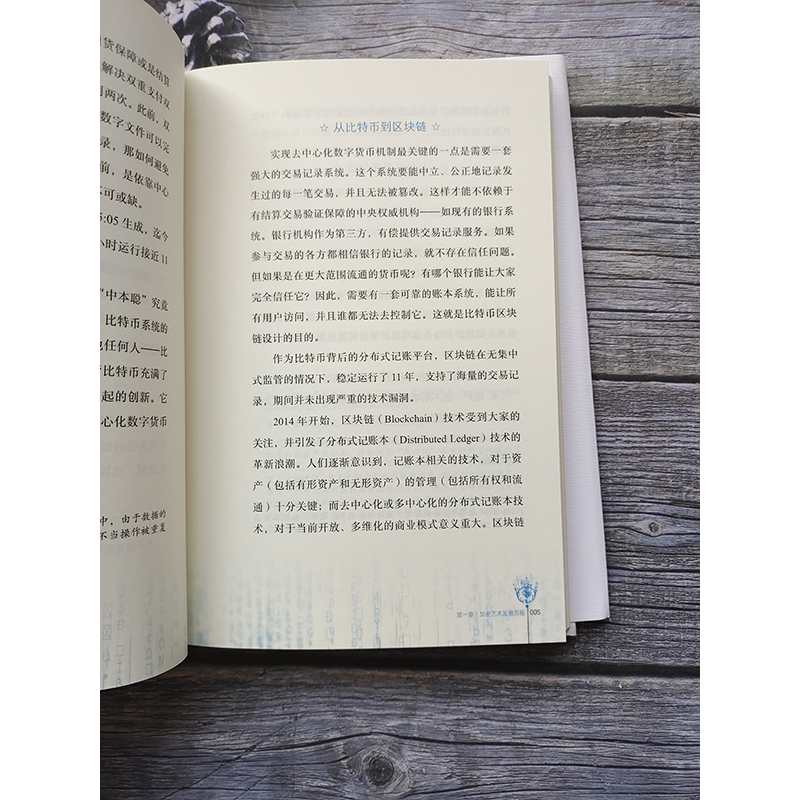 货保障或是结算
解决双重支付双
两次。此前，双
数字文件可以完
录，那如何避免
前，是依靠中心
不可或缺。
5:05 生成，迄今
小时运行接近 11
“中本聪”究竟
比特币系统的
他任何人——比
比特币充满了
起的创新。它
心化数字货币
中，由于数据的
不当操作被重复
☆ 从比特币到区块链 ☆
实现去中心化数字货币机制最关键的一点是需要一套
强大的交易记录系统。这个系统要能中立、公正地记录发
生过的每一笔交易，并且无法被篡改。这样才能不依赖于
有结算交易验证保障的中央权威机构——如现有的银行系
统。银行机构作为第三方，有偿提供交易记录服务。如果
参与交易的各方都相信银行的记录，就不存在信任问题。
但如果是在更大范围流通的货币呢？有哪个银行能让大家
完全信任它？因此，需要有一套可靠的账本系统，能让所
有用户访问，并且谁都无法去控制它。这就是比特币区块
链设计的目的。
作为比特币背后的分布式记账平台，区块链在无集中
式监管的情况下，稳定运行了 11 年，支持了海量的交易记
录，期间并未出现严重的技术漏洞。
2014 年开始，区块链（Blockchain）技术受到大家的
关注，并引发了分布式记账本（Distributed Ledger）技术的
革新浪潮。人们逐渐意识到，记账本相关的技术，对于资
产（包括有形资产和无形资产）的管理（包括所有权和流
通）十分关键；而去中心化或多中心化的分布式记账本技
术，对于当前开放、多维化的商业模式意义重大。区块链
第一章 加密艺术发展历程 005